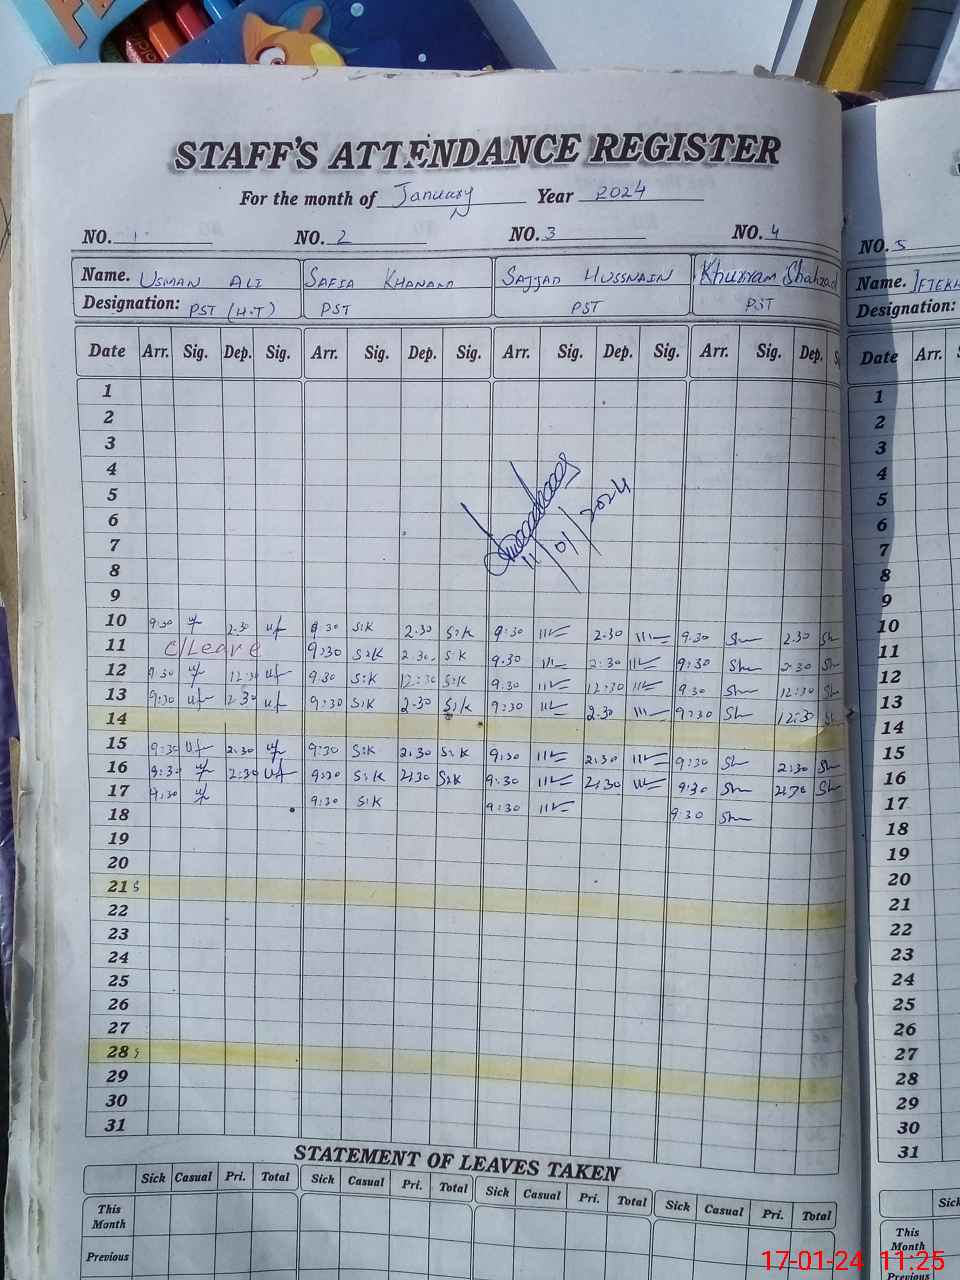 STAFF'S ATTENDANCE REGISTER
For the month of January Year 2024
NO. 1 NO. 2 NO. 3 NO. 4
Name. USMAN ALI SAFIA KHANAM SAJJAD HUSSNAIN Khurram Shahzad
Designation: PST (H.T) PST PST PST
Date Arr. Sig. Dep. Sig. Arr. Sig. Dep. Sig. Arr. Sig. Dep. Sig. Arr. Sig. Dep.
1
2
3
4
5
6
7
8
9
11/01/2024
10 9:30 2.30 9:30 S:K 2.30 S:K 9:30 2.30 9.30 Sh 2.30 Sh
11 C/Leave 9:30 S:K 2.30 S:K 9.30 2:30 9:30 Sh 2:30 Sh
12 9.30 12:30 9.30 S:K 12:30 S:K 9.30 12:30 9.30 Sh 12:30 Sh
13 9:30 2.30 9:30 S:K 2.30 S:K 9:30 2.30 9:30 Sh 12:30 Sh
14
15 9:30 2:30 9:30 S:K 2.30 S:K 9:30 2:30 9:30 Sh 2:30 Sh
16 9:30 2:30 9:30 S:K 2:30 S:K 9:30 2:30 9:30 Sh 2:30 Sh
17 9:30 9:30 S:K 9:30 9:30 Sh
18
19
20
21 S
22
23
24
25
26
27
28 S
29
30
31
STATEMENT OF LEAVES TAKEN
Sick Casual Pri. Total Sick Casual Pri. Total Sick Casual Pri. Total Sick Casual Pri. Total
This Month
Previous
NO. 5
Name. IFTEKH
Designation:
Date Arr.
1
2
3
4
5
6
7
8
9
10
11
12
13
14
15
16
17
18
19
20
21
22
23
24
25
26
27
28
29
30
31
Sick
This Month
Previous
17-01-24 11:25